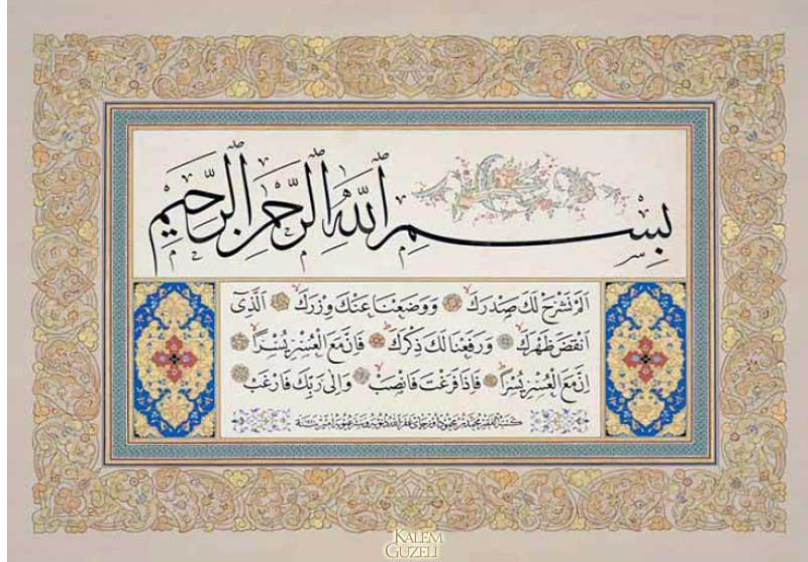 بِسْمِ اللهِ الرَّحْمٰنِ الرَّحِيمِ
اَلَمْ نَشْرَحْ لَكَ صَدْرَكَ وَوَضَعْنَا عَنْكَ وِزْرَكَ اَلَّذِى
اَنْقَضَ ظَهْرَكَ وَرَفَعْنَا لَكَ ذِكْرَكَ فَاِنَّ مَعَ الْعُسْرِ يُسْرًا
اِنَّ مَعَ الْعُسْرِ يُسْرًا فَاِذَا فَرَغْتَ فَانْصَبْ وَاِلٰى رَبِّكَ فَارْغَبْ
KALEM
GÜZELİ